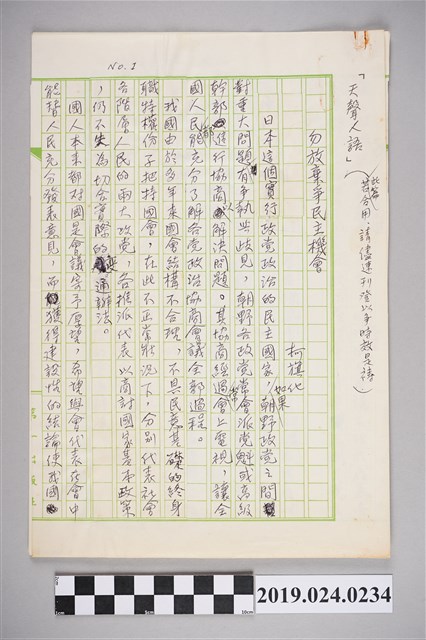 NO.1
「天聲人語」
(此篇若合用,請儘速刊登以争時效是禱)
勿放棄爭民主機會
柯旗化
日本這個實行政黨政治的民主國家,如果朝野政黨之間
對重大問題有爭執些歧見,朝野各政黨常會派党魁或高級
幹部進行協商以解決問題。其協商經過會上電視,讓全
國人民都能充分了解各党政治協商會議全部過程。
我國由於多年來國會結構不合理,不具民意基礎的終身
職特權份子把持國會,在此不正常狀況下,分別代表社會
各階層人民的兩大政党,各推派代表以商討國家基本政策
,仍不失為切合實際的變通辦法。
國人本來都對國是會議寄予厚望,希望與會代表在會中
能替人民充分發表意見,而獲得建設性的結論使我國
2019.024.0234
0
1cm
5cm
10cm